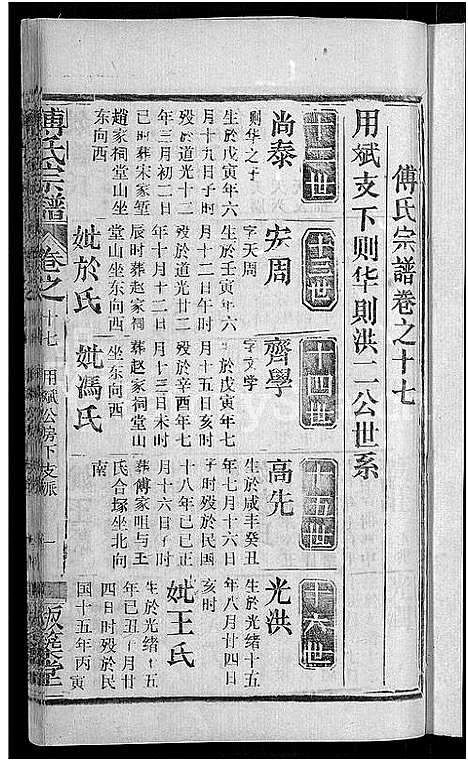 傅氏宗譜卷之十七
用斌支下则华則洪二公世系
十二世
尚泰
则华之子
生於戊寅年六
月十九日子时
殁於道光十二
年三月初二日
已时葬宋家堑
趙家祠堂山坐
东向西
十三世
安周
字天周
生於壬寅年六
月十二日午时
殁於道光廿二
年十月十二日
辰时葬赵家祠
堂山坐东向西
妣於氏
十四世
齊學
字文学
生於戊寅年七
月十五日亥时
殁於辛酉年七
月十三日未时
葬赵家祠堂山
坐东向西
妣馮氏
十五世
高先
生於咸丰癸丑
年七月十六日
子时殁於民国
十八年己巳正
月十六日子时
葬傅家咀与王
氏合塚坐北向
南
十六世
光洪
生於光緒十五
年八月廿四日
亥时
妣王氏
生於光绪十五
年已丑八月廿
四日时殁於民
国十五年丙寅
傅氏宗譜
卷之十七
用斌公房下支派
一
版築堂